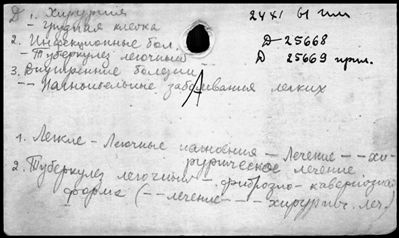 Д 1. Хирургия
24 XI 61 г
– грудная клетка
Д-25668
2. Инфекционные бол.
– Туберкулез легочный
Д 25669 прил.
3. Внутренние болезни
-- Нагноительные заболевания легких
1. Легкие – Легочные нагноения – Лечение – – хи-
рургическое лечение
2. Туберкулез легочный – фиброзно-кавернозная
форма (– – лечение – – – хирургич. леч.)